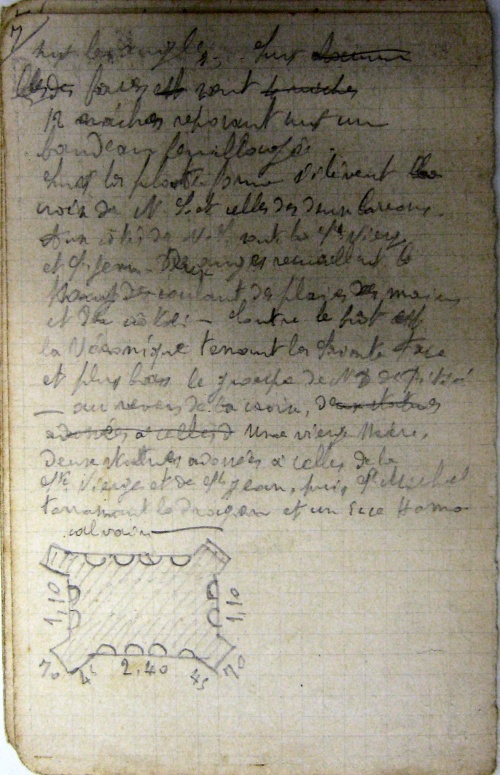 7
sur les angles. Sur chacune
des faces est sont
12 niches reposant sur un
bandeau feuillagé.
Sur la plate forme s'élèvent la
croix de N. S. et celles des deux larrons.
Aux côtés de N. S. sont la Ste Vierge
et St Jean. Deux anges recueillent le
sang coulant des plaies des mains
et du côté. — Contre le fût est
la Véronique tenant la Sainte Face
et plus bas le groupe de ND de Pitié
— au revers de la croix, des statues
adossées à celles d une vierge Mère,
deux statues adossées à celles de la
Ste Vierge et de St Jean, puis St Michel
terrassant le dragon et un Ecce Homo
calvaire
1,10
1,10
70
45
2.40
45
70